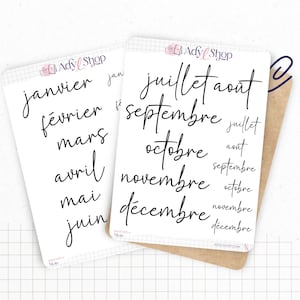 Ady & Shop
janvier
février
mars
avril
mai
juin
Ady & Shop
juillet août
septembre
octobre
novembre
décembre
juillet
août
septembre
octobre
novembre
décembre